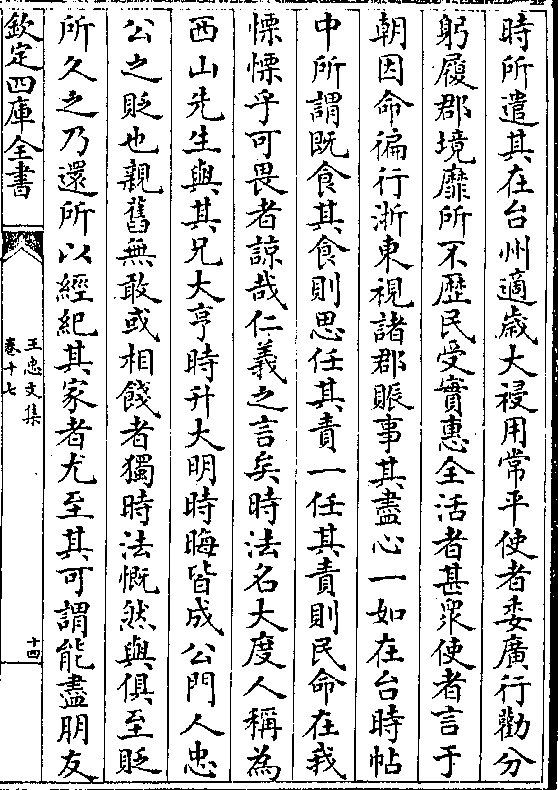 時所遣其在台州適歲大祲用常平使者委廣行勸分
躬履郡境靡所不歷民受實惠全活者甚衆使者言于
朝因命徧行浙東視諸郡賑事其盡心一如在台時帖
中所謂既食其食則思任其責一任其責則民命在我
慄慄乎可畏者諒哉仁義之言矣時法名大度人稱為
西山先生與其兄大亨時升大明時晦皆成公門人忠
公之貶也親舊無敢或相餞者獨時法慨然與俱至貶
所久之乃還所以經紀其家者尤至其可謂能盡朋友
欽定四庫全書
王忠文集
卷十七
十四